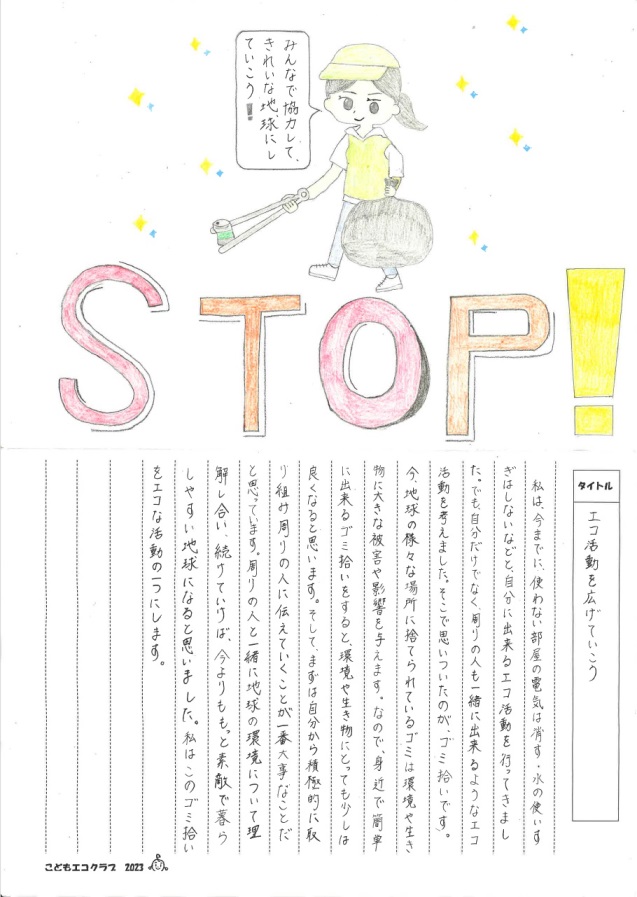 みんなで協力して、
きれいな地球にし
ていこう!
STOP!
タイトル
エコ活動を広げていこう
私は、今までに、使わない部屋の電気は消す・水の使いす
ぎはしないなどと、自分に出来るエコ活動を行ってきまし
た。でも、自分だけでなく、周りの人も一緒に出来るようなエコ
活動を考えました。そこで思いついたのが、ゴミ拾いです。
今、地球の様々な場所に捨てられているゴミは環境や生き
物に大きな被害や影響を与えます。なので、身近で簡単
に出来るゴミ拾いをすると、環境や生き物にとっても少しは
良くなると思います。そして、まずは自分から積極的に取
り組み周りの人に伝えていくことが一番大事なことだ
と思っています。周りの人と一緒に地球の環境について理
解し合い、続けていけば、今よりももっと素敵で暮ら
しやすい地球になると思いました。私はこのゴミ拾い
をエコな活動の一つにします。
こどもエコクラブ 2023